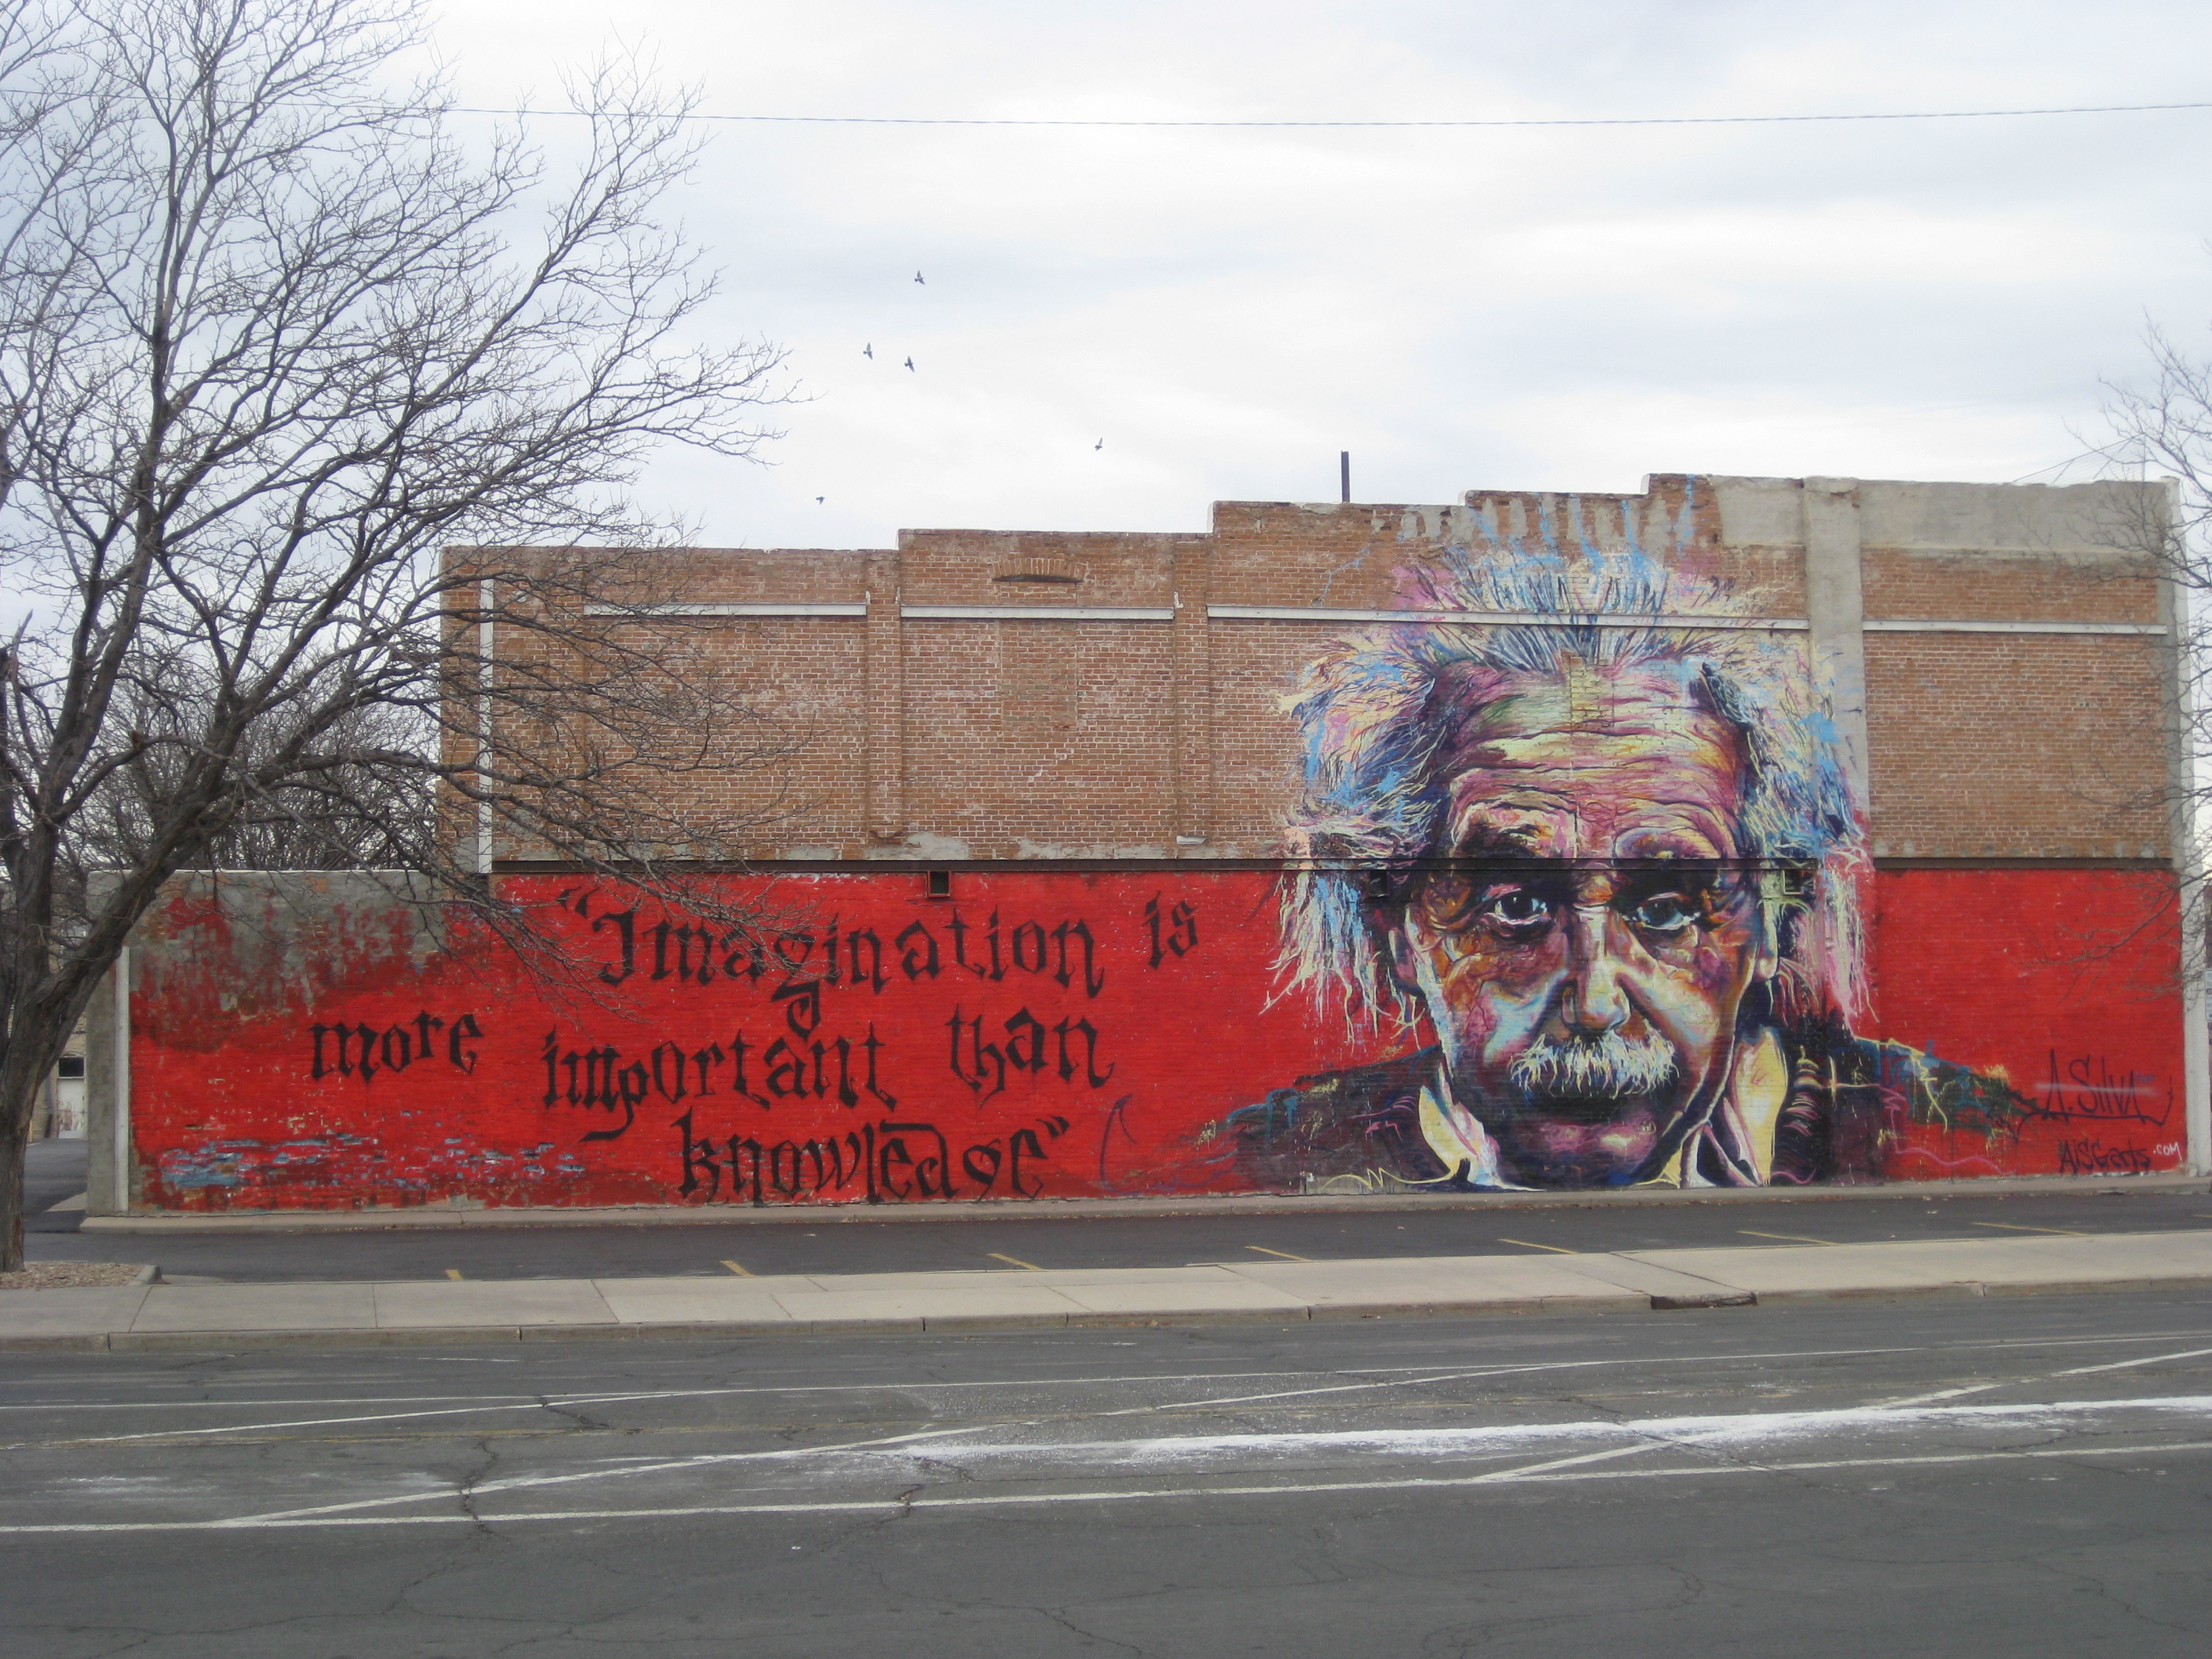 "Imagination is
more important than
knowledge"
A. Silva
AiSGarts.com